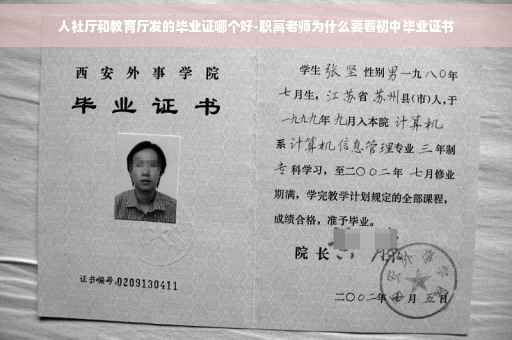 人社厅和教育厅发的毕业证哪个好-职高老师为什么要看初中毕业证书
西安外事学院
毕业证书
证书编号:0209130411
学生 张坚 性别 男 一九八〇年
七月生，江苏省 苏州县(市)人，于
一九九九年 九月入本院 计算机
系 计算机信息管理专业 三 年制
专 科学习，至二〇〇二年 七月修业
期满，学完教学计划规定的全部课程，
成绩合格，准予毕业。
院长
二〇〇二年 月 五日